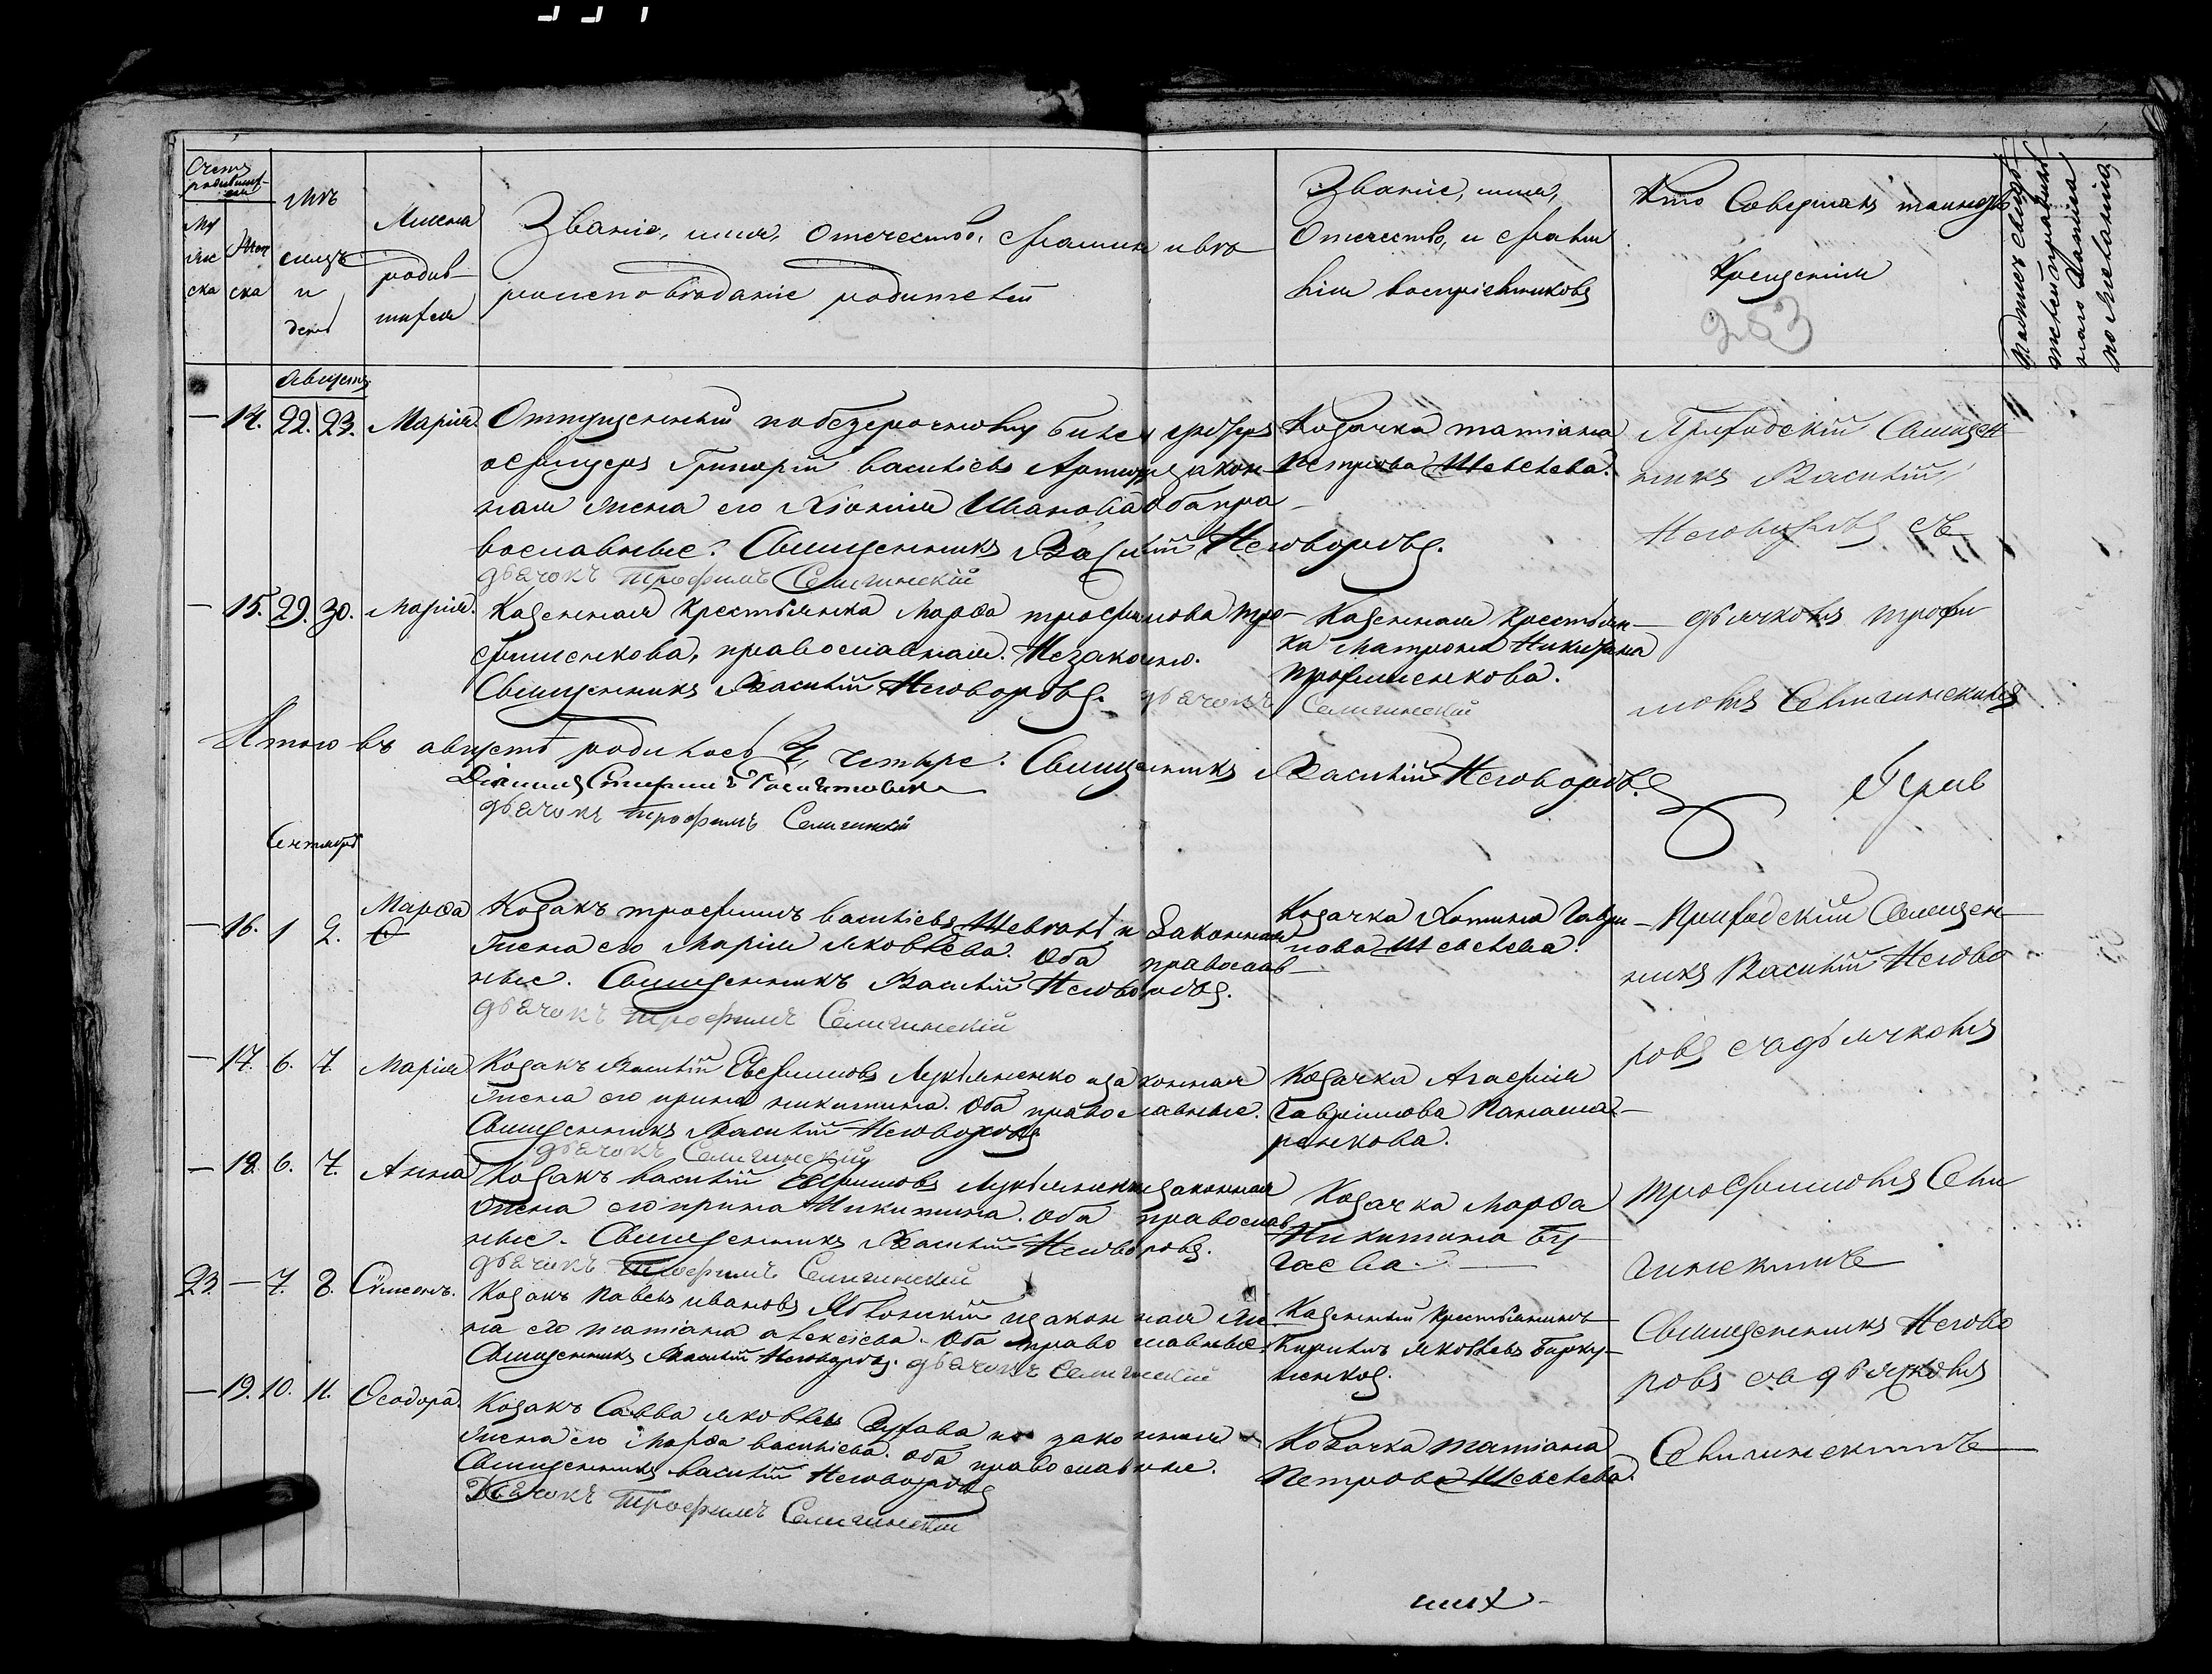 Счетъ родившихся
Му
жес
ска
Жен
ска
Мѣ
сяцъ
и
день
Имена
родив
шихся
Званіе, имя, Отечество, Фамилія и вѣро
исповѣданіе родителей
Званіе, имя,
Отечество, и Фами
лія воспріемниковъ
Кто Совершалъ таинство
Крещенія
253
по желанію
Августъ
— 14. 22. 23. Марія
Отпущенный по безсрочному билету унтеръ
офицеръ Григорій Васильевъ и закон
ная жена его Хіонія Иванова Оба пра
вославные. Священникъ Василій Неговоровъ.
дьячокъ Трофимъ Селигинскій
Козачка татіана
Петрова Шевелева.
Приходскій Священ
никъ Василій
Неговоровъ съ
— 15. 29. 30. Марія.
Казенная крестьянка Марѳа трофимова Тро
фименкова, православная. Незаконно.
Священникъ Василій Неговоровъ. дьячокъ Селигинскій
Казенная Крестьян
ка Матрона Никитина
трофименкова.
дьячкомъ трофи
момъ Селигинскимъ
Итого въ августѣ родилось 4, четыре. Священникъ Василій Неговоровъ.
дьячокъ Трофимъ Селигинскій
Сентябрь
— 16. 1 2. Марѳа
Козакъ трофимъ васильевъ и Законная
жена его Марія яковлева. Оба православ
ные. Священникъ Василій Неговоровъ.
дьячокъ Трофимъ Селигинскій
Козачка Гаври
лова Шевелева.
Приходскій Священ
никъ Василій Негово
ровъ съ дьячкомъ
— 17. 6. 7. Марія
Козакъ Василій Евфимовъ Лукьяненко и законная
жена его ирина никитина. Оба православные.
Священникъ Василій Неговоровъ
дьячокъ Селигинскій
Козачка Агафія
Гавріилова Панама
ренкова.
— 18. 6. 7. Анна
Козакъ василій Евфимовъ Лукьяненко и законная
жена его ирина Никитина. Оба православ
ные. Священникъ Василій Неговоровъ.
дьячокъ Трофимъ Селигинскій
Козачка Марѳа
Никитина Бу
гаева.
трофимомъ Сели
гинскимъ
23. — 7. 8. Симеонъ.
Козакъ Павелъ ивановъ Яблонскій и законная же
на его татіана алексіева. Оба православные
Священникъ Василій Неговоровъ. дьячокъ Селигинскій
Казенный Крестьянинъ
Кирилъ яковлевъ Бирку
ленковъ.
Священникъ Негово
ровъ съ дьячкомъ
— 19. 10. 11. Ѳеодора.
Козакъ Савва яковлевъ и законная
жена его Марѳа васильева. оба православные.
Священникъ василій Неговоровъ
Дьячокъ Трофимъ Селигинскій
Козачка татіана
Петрова Шевелева.
Селигинскимъ